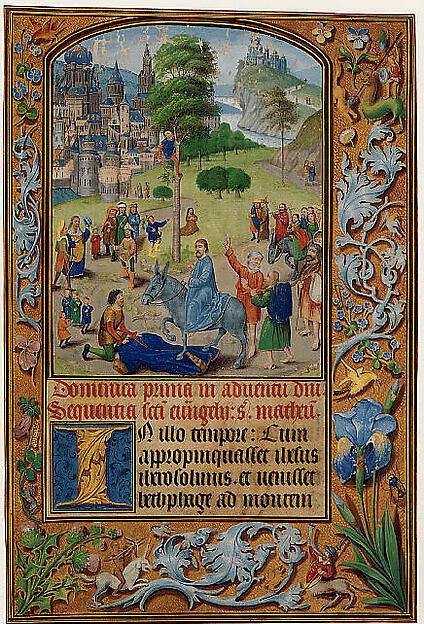 Dominica prima in aduentu dni.
Sequentia scti euugelij: s. mathei.
IN illo tempore: Cum
appropinquasset iesus
iherosolimis. et uenisset
bethphage ad montem